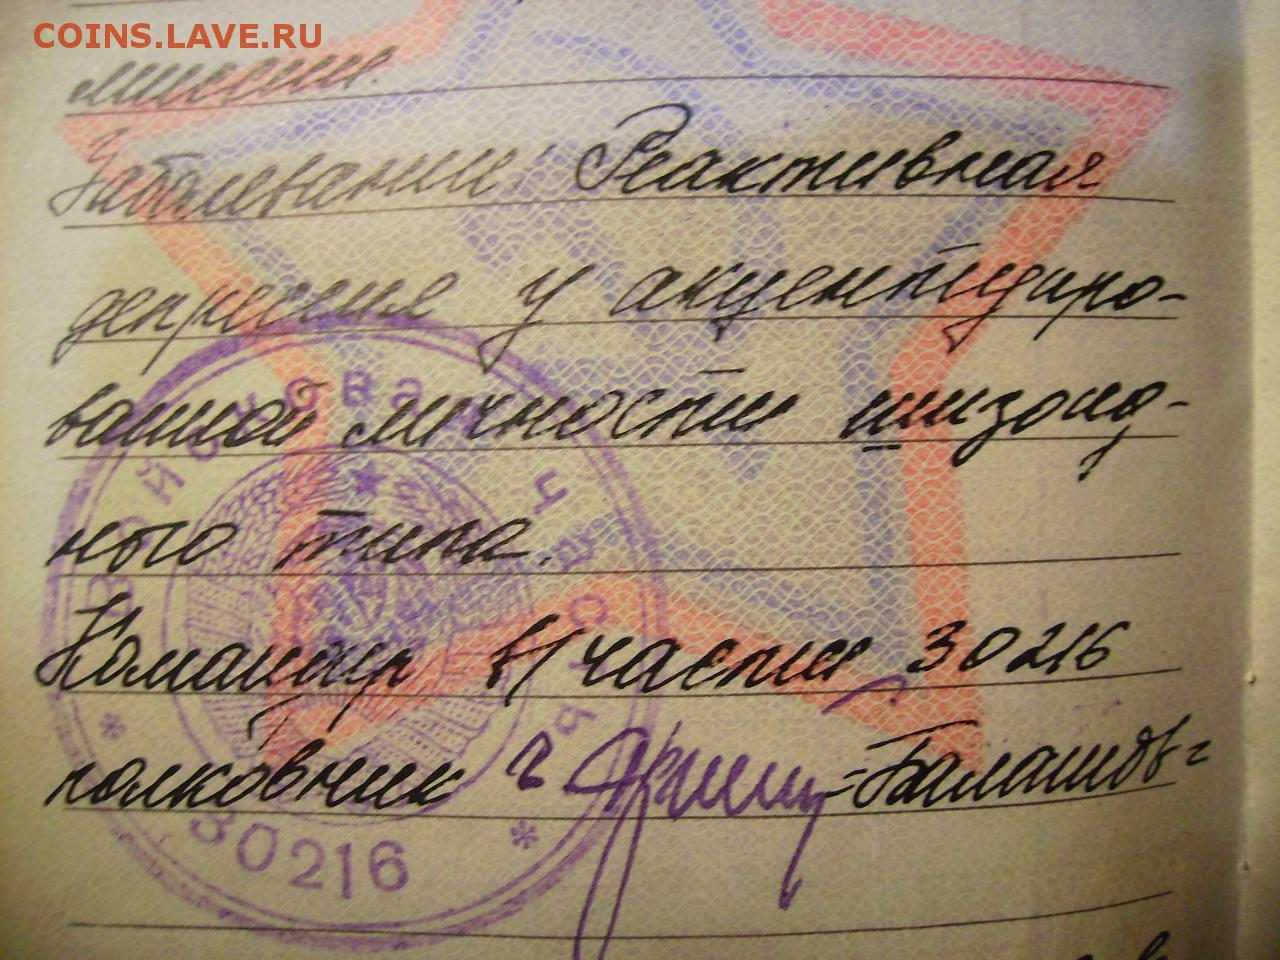 COINS.LAVE.RU
миссии.
Заболевание: Реактивная
депрессия у акцентуиро-
ванной личности шизоид-
ного типа.
Командир в/части 30216
полковник
=Балашов=
Войсковая часть
* 30216 *